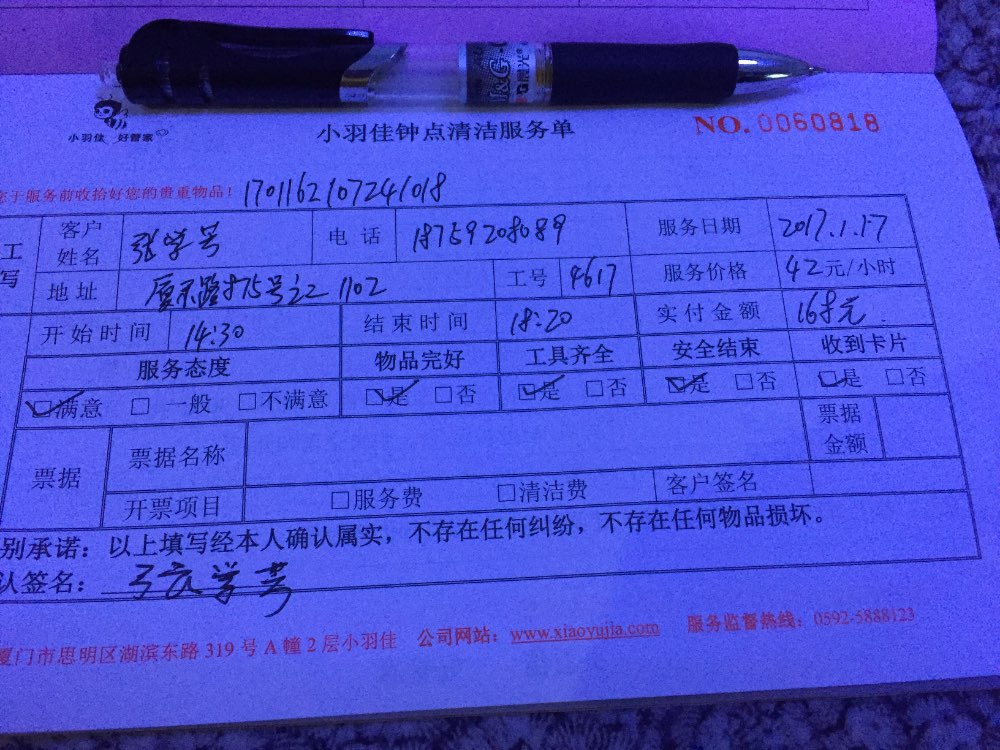 M&G 晨光
小羽佳 好管家
小羽佳钟点清洁服务单
NO. 0060818
于服务前收拾好您的贵重物品! 1701162107241018
工 客户姓名 电话 18759208089 服务日期 2017.1.17
写 地址 1102 工号 4617 服务价格 42元/小时
开始时间 14:30 结束时间 18:20 实付金额 168元
服务态度 物品完好 工具齐全 安全结束 收到卡片
☑满意 □一般 □不满意 ☑是 □否 ☑是 □否 ☑是 □否 ☑是 □否
票据 票据名称 票据金额
开票项目 □服务费 □清洁费 客户签名
别承诺：以上填写经本人确认属实，不存在任何纠纷，不存在任何物品损坏。
认签名：
厦门市思明区湖滨东路319号A幢2层小羽佳 公司网站：www.xiaoyujia.com 服务监督热线：0592-5888123